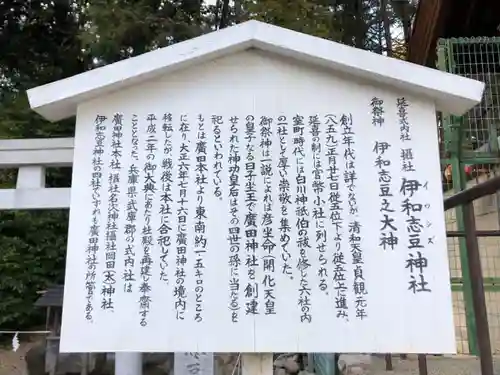 延喜式内社 摂社 伊和志豆神社
イワシズ
御祭神 伊和志豆之大神
創立年代は詳でないが 清和天皇貞観元年
(八五九)正月廿七日従五位下より従五位上に進み、
延喜の制には官幣小社に列せられる。
室町時代には白川神祇伯の拝を修した六社の内
の一社として厚い崇敬を集めていた。
御祭神は一説によれば彦坐命(開化天皇
の皇子なる日子坐王で廣田神社を創建
せられた神功皇后はその四世の孫に当たる)を
祀るといわれている。
もとは廣田本社より東南約一.五キロのところ
に在り大正六年七月十六日に廣田神社の境内に
移転したが戦後は本社に合祀していた。
平成二年の御大典にあたり社殿を再建し奉齋する
こととなった。兵庫県武庫郡の式内社は
廣田神社本社、摂社名次神社、摂社岡田(太)神社、
伊和志豆神社の四社でいずれも廣田神社の所管である。